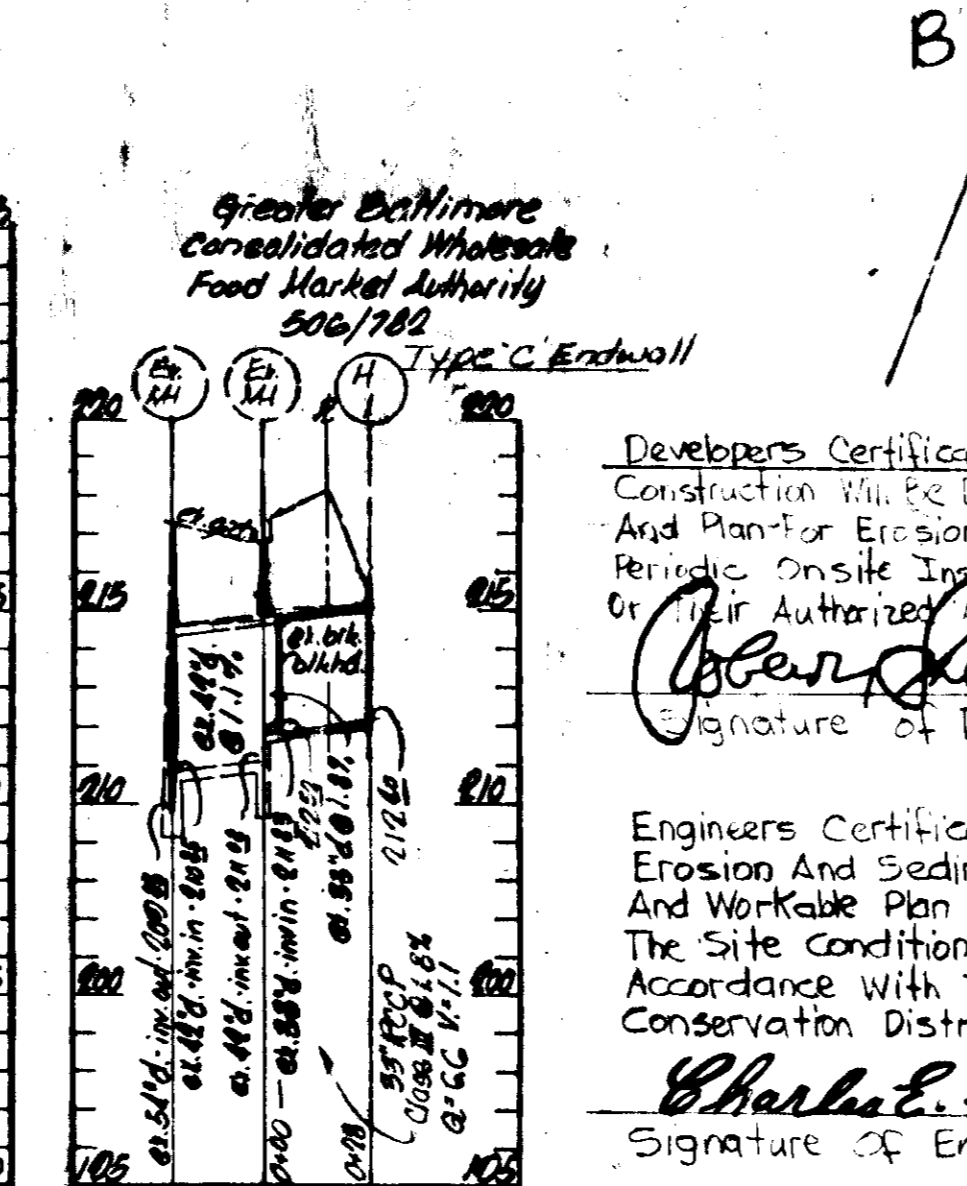 B
Greater Baltimore
Consolidated Wholesale
Food Market Authority
506/782
Type 'C' Endwall
Ex. MH
Ex. MH
H
220
220
215
215
210
210
200
200
105
105
ex. brk.
blkhd.
@ 1.1%
ex. 54"d. inv. out
ex. 42"d. inv. in
inv. out
0+00
inv. in
ex. 33"d @ 1.8%
212 60
33" RCCP
Class III @ 1.8%
Q=66 V=1.1
Developers Certifica
Construction Will Be
And Plan For Erosion
Periodic Onsite Ins
Or Their Authorized
Signature of
Engineers Certific
Erosion And Sedi
And Workable Plan
The Site Condition
Accordance With
Conservation Distr
Charles E.
Signature Of En